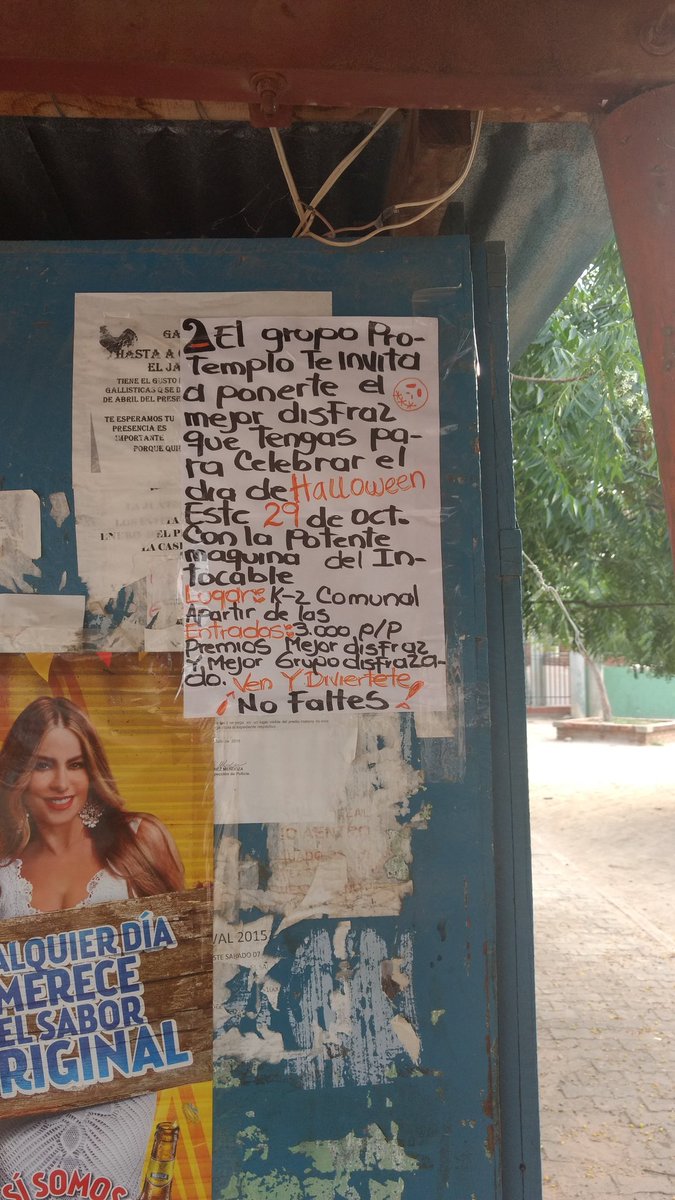 GA
HASTA A
EL JA
TIENE EL GUSTO
GALLISTICAS Q SE D
DE ABRIL DEL PRESE
TE ESPERAMOS TU
PRESENCIA ES
IMPORTANTE
PORQUE QUI
LA CASI
El grupo Pro-
Templo Te Invita
a ponerte el
mejor disfraz
que Tengas pa-
ra Celebrar el
dia de Halloween
Este 29 de oct.
Con la Potente
maquina del In-
tocable
Lugar: K-2 Comunal
Apartir de las
Entradas: 3.000 p/p
Premios Mejor disfraz
Y Mejor Grupo disfraza-
do. ¡Ven Y Diviertete
No Faltes!
VAL 2015
STE SABADO 07
ALQUIER DÍA
MERECE
EL SABOR
RIGINAL
SÍ SOMOS